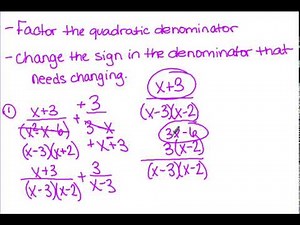 - Factor the quadratic denominator
- Change the sign in the denominator that
needs changing.
① x+3 + 3
(x²-x-6) 3-x
(x-3)(x+2) + x-+3
x+3 + 3
(x-3)(x-2) x-3
x+3
(x-3)(x-2)
3x-6
3(x-2)
(x-3)(x-2)